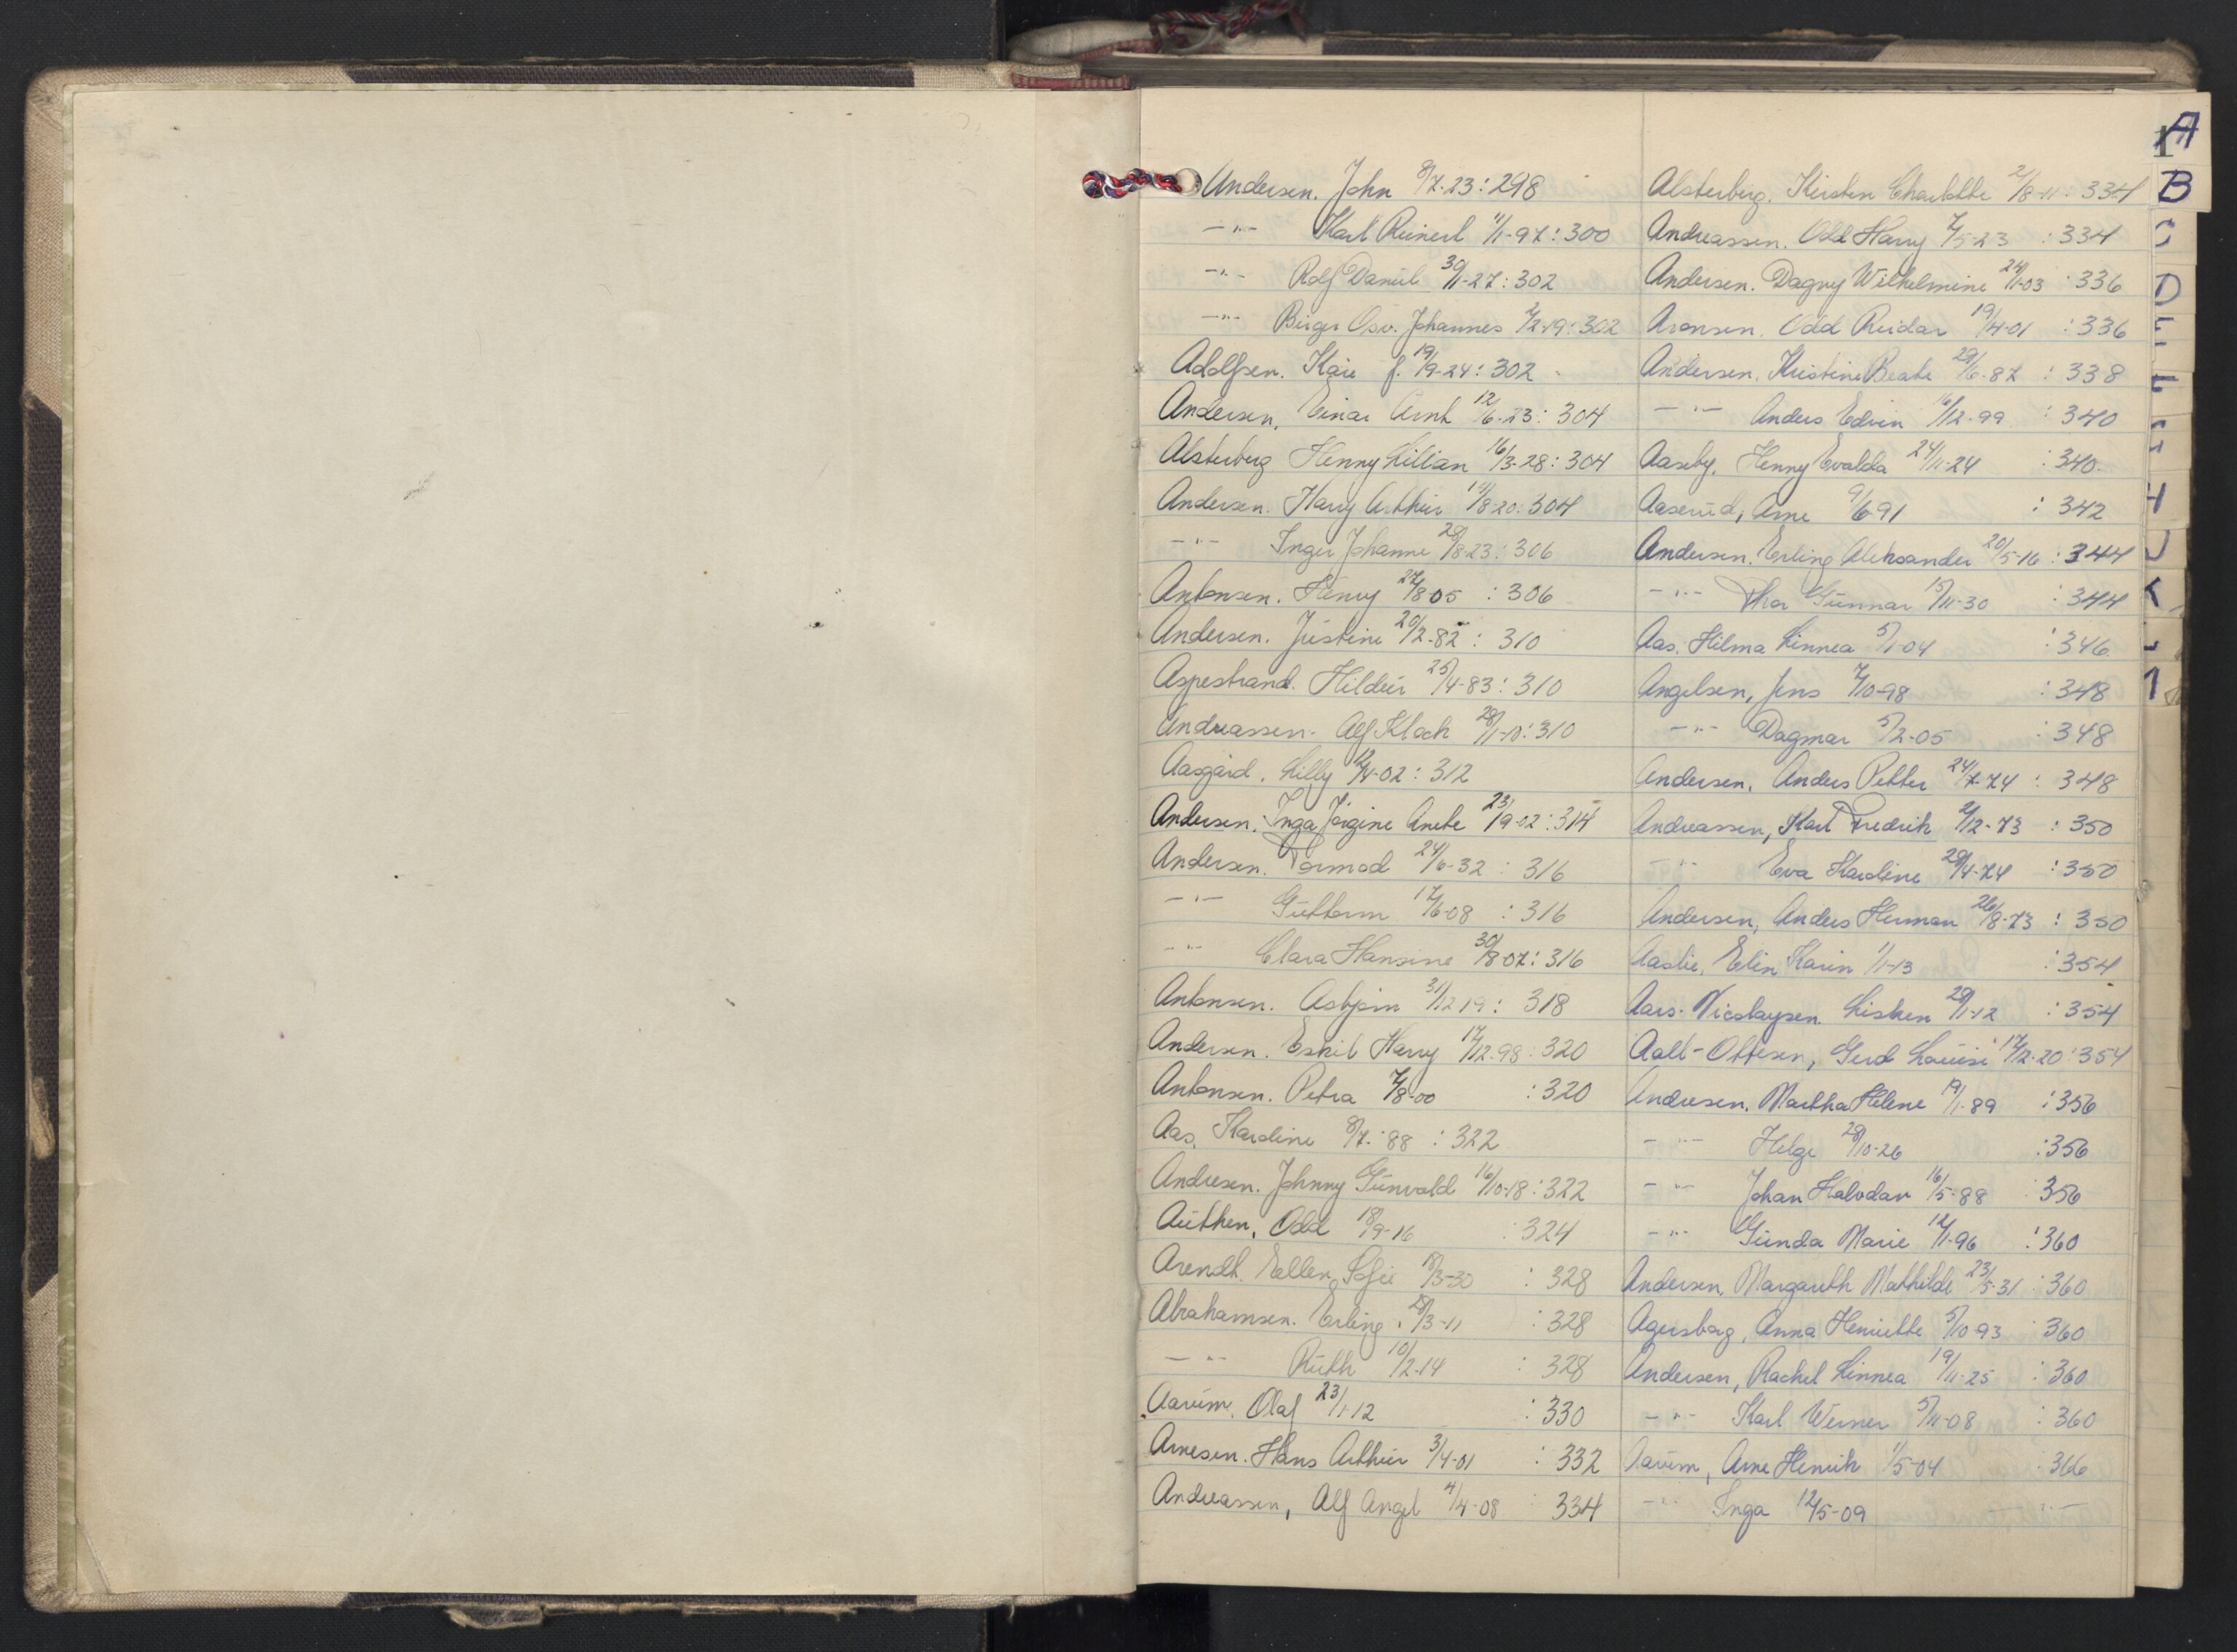 1
A
B
C
D
E
F
G
H
J
K
Andersen. John 8/7-23 : 298
—"— Karl Reinert 11/1-97 : 300
—"— Rolf Daniel 30/11-27 : 302
—"— Birger Osv. Johannes 7/2-19 : 302
Adolfsen. Kåre f. 19/9-24 : 302
Andersen, Einar Arnt 12/6-23 : 304
Alsterberg Henny Lilian 16/3-28 : 304
Andersen. Harry Arthur 11/8-20 : 304
—"— Inger Johanne 28/8-23 : 306
Antonsen. Henry 27/8-05 : 306
Andersen. Justine 20/2-82 : 310
Aspestrand. Hildur 25/4-83 : 310
Andreassen. Alf Kloch 28/11-10 : 310
Aasgård. Lilly 12/4-02 : 312
Andersen. Inga Jørgine Anete 23/9-02 : 314
Andersen. Tormod 24/6-32 : 316
—"— Guttorm 17/6-08 : 316
—"— Clara Hansine 30/8-07 : 316
Antonsen. Asbjørn 31/12 19 : 318
Andersen. Eskil Harry 17/12-98 : 320
Antonsen. Petra 7/8-00 : 320
Aas. Karoline 8/7-88 : 322
Andresen. Johnny Gunvald 16/10-18 : 322
Authen, Odd 18/9-16 : 324
Arendt. Ellen Sofie 18/3-30 : 328
Abrahamsen. Erling. 28/3-11 : 328
—"— Ruth 10/2-14 : 328
Aarum. Olaf 23/1-12 : 330
Arnesen. Hans Arthur 3/4-01 : 332
Andreassen, Alf Angel 4/4-08 : 334
Alsterberg. Kirsten Charlotte 2/8-11 : 334
Andreassen. Odd Harry 7/5-23 : 334
Andersen. Dagny Wilhelmine 24/11-03 : 336
Aronsen. Odd Reidar 19/4-01 : 336
Andersen. Kristine Beate 29/6-87 : 338
—"— Anders Edvin 16/12-99 : 340
Aaseby, Henny Evalda 24/11-24 : 340
Aaserud, Arne 9/6-91 : 342
Andersen. Erling Aleksander 20/5-16 : 344
—"— Thor Gunnar 15/11-30 : 344
Aas. Hilma Linnea 5/1-04 : 346
Angelsen, Jens 7/10-98 : 348
—"— Dagmar 5/2-05 : 348
Andersen, Anders Petter 24/7-74 : 348
Andreassen, Karl Fredrik 2/12-73 : 350
—"— Eva Karoline 29/4-74 : 350
Andersen, Anders Herman 26/8-73 : 350
Aaslie, Elin Karin 1/1-13 : 354
Aars-Nicolaysen. Lisken 29/1-12 : 354
Aall-Ottesen, Gerd Louise 17/2-20 : 354
Andresen. Martha Helene 19/1-89 : 356
—"— Helge 28/10-26 : 356
—"— Johan Halvdan 16/5-88 : 356
—"— Gunda Marie 12/1-96 : 360
Andersen, Margareth Mathilde 23/5-31 : 360
Agersborg, Anna Henriette 5/10-93 : 360
Andersen, Rachel Linnea 19/11-25 : 360
—"— Karl Werner 5/11-08 : 360
Aarum, Arne Henrik 1/5-04 : 366
—"— Inga 12/5-09 —"—